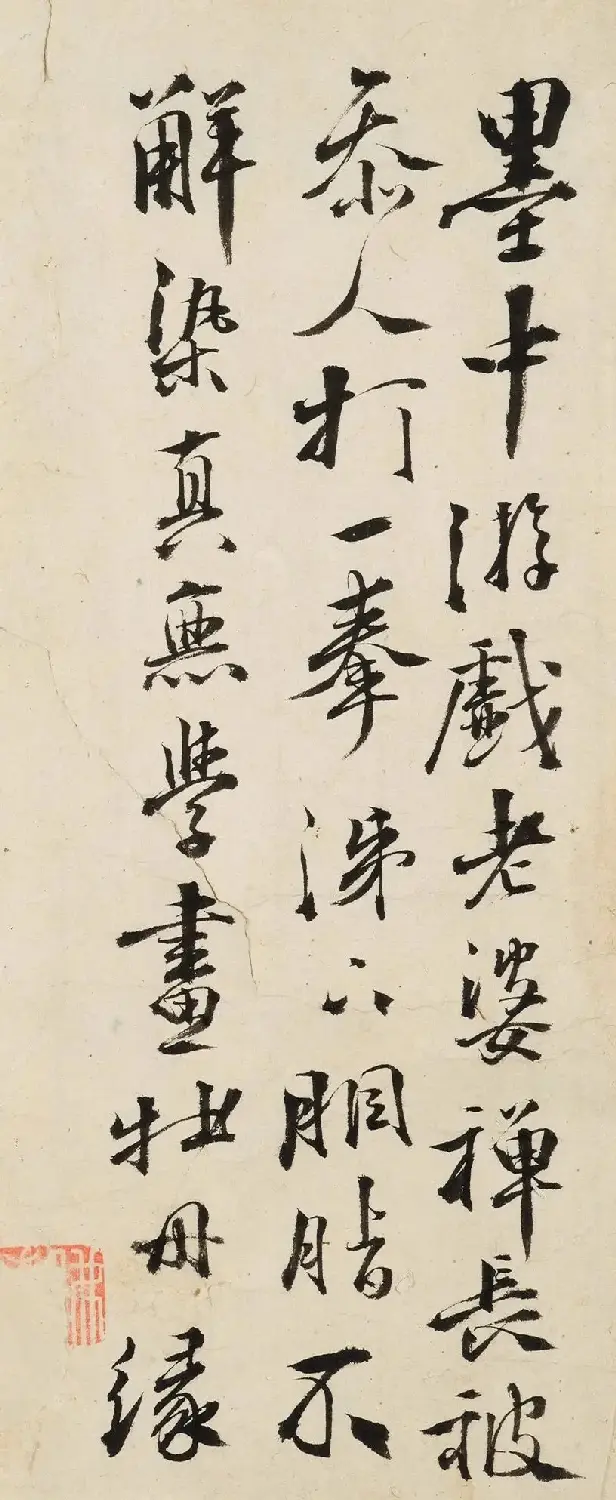 墨中游戲老婆禪長被
叅人打一拳涕下胭脂不
解染真無學畫牡丹緣